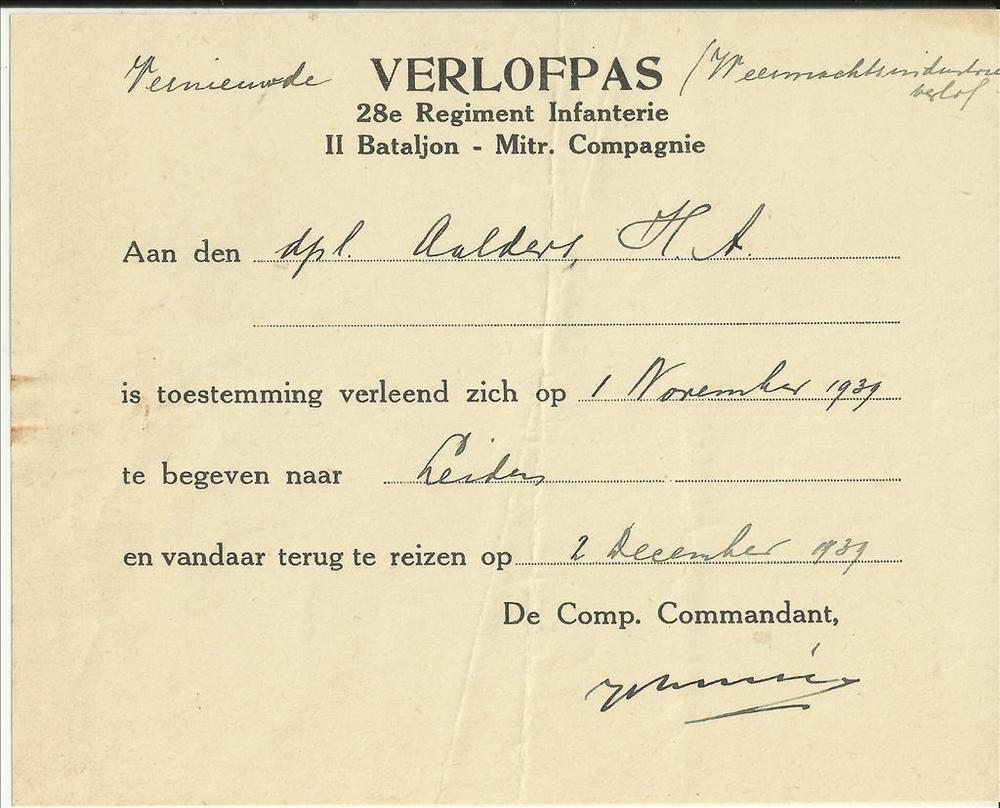 Vernieuwde VERLOFPAS (Weermachtsindustrie
verlof
28e Regiment Infanterie
II Bataljon - Mitr. Compagnie
Aan den dpl. Aalders, H. A.
is toestemming verleend zich op 1 November 1939
te begeven naar Leiden
en vandaar terug te reizen op 2 December 1939
De Comp. Commandant,